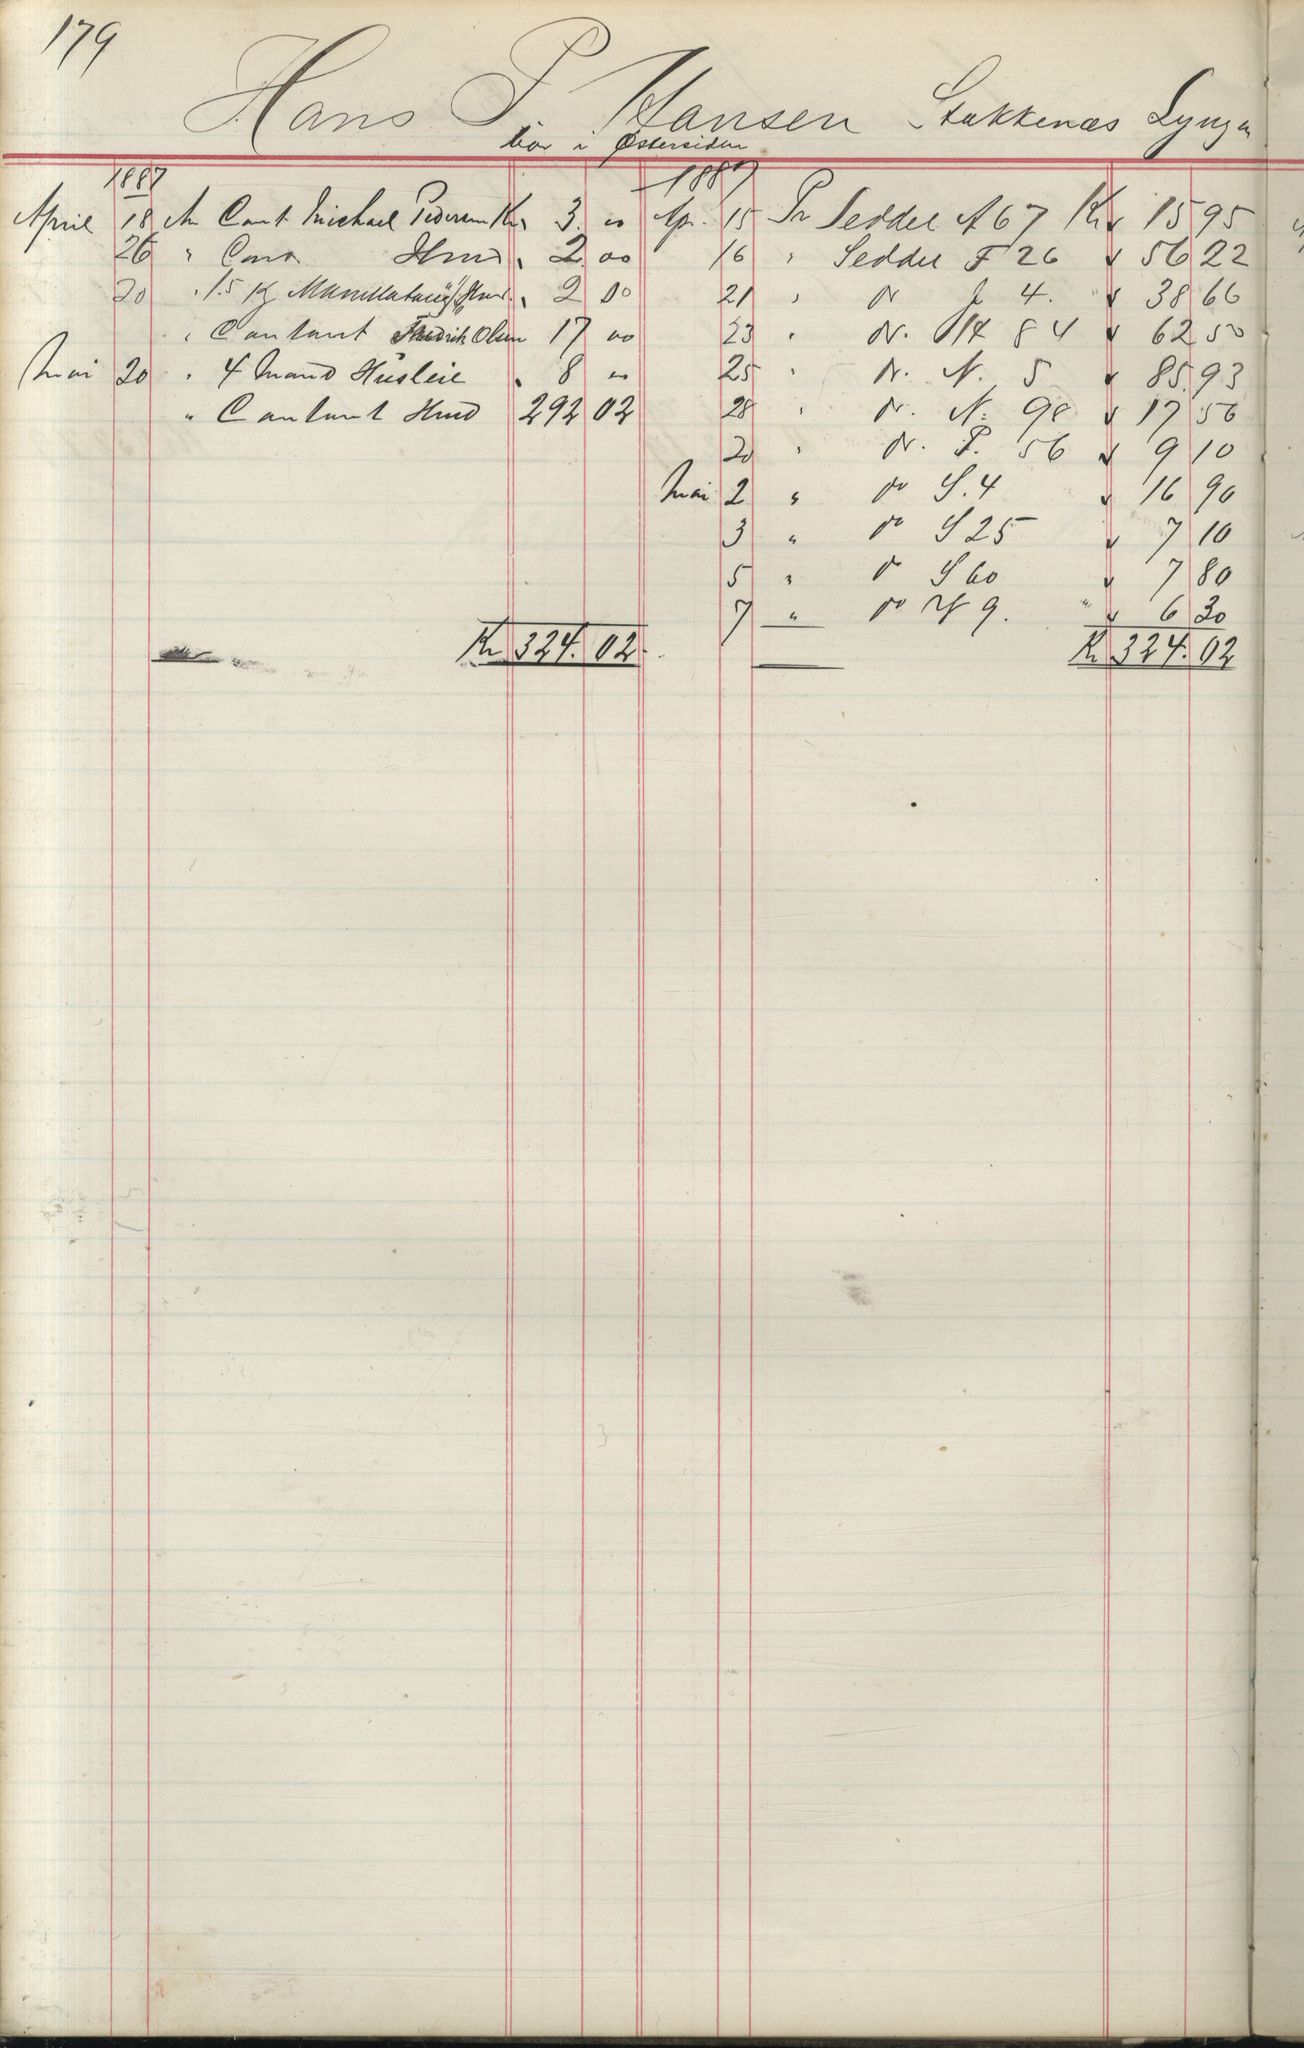 179
Hans P Hansen Stakkenæs Lyngen
bor i Østersiden
1887
April 18 An Cont Michael Pedersen Kr 3. 00
26 " Cont Hmd 2. 00
20 " 1.5 Kg Manillataug Hmd. 2 00
" Contant Fredrik Olsen 17 00
Mai 20 " 4 Mand Husleie 8 00
" Contant Hmd 292 02
Kr 324. 02
1887
Apr. 15 Pr Seddel A 67 Kr 15 95
16 " Seddel F 26 56 22
21 " do 4. 38 66
23 " do. M 84 62 50
25 " do. N. 5 85. 93
28 " do. N. 98 17 56
20 " do. P. 56 9 10
Mai 2 " do S. 4 16 90
3 " do S 25 7 10
5 " do S 60 7 80
7 " do 9. 6 30
Kr 324. 02